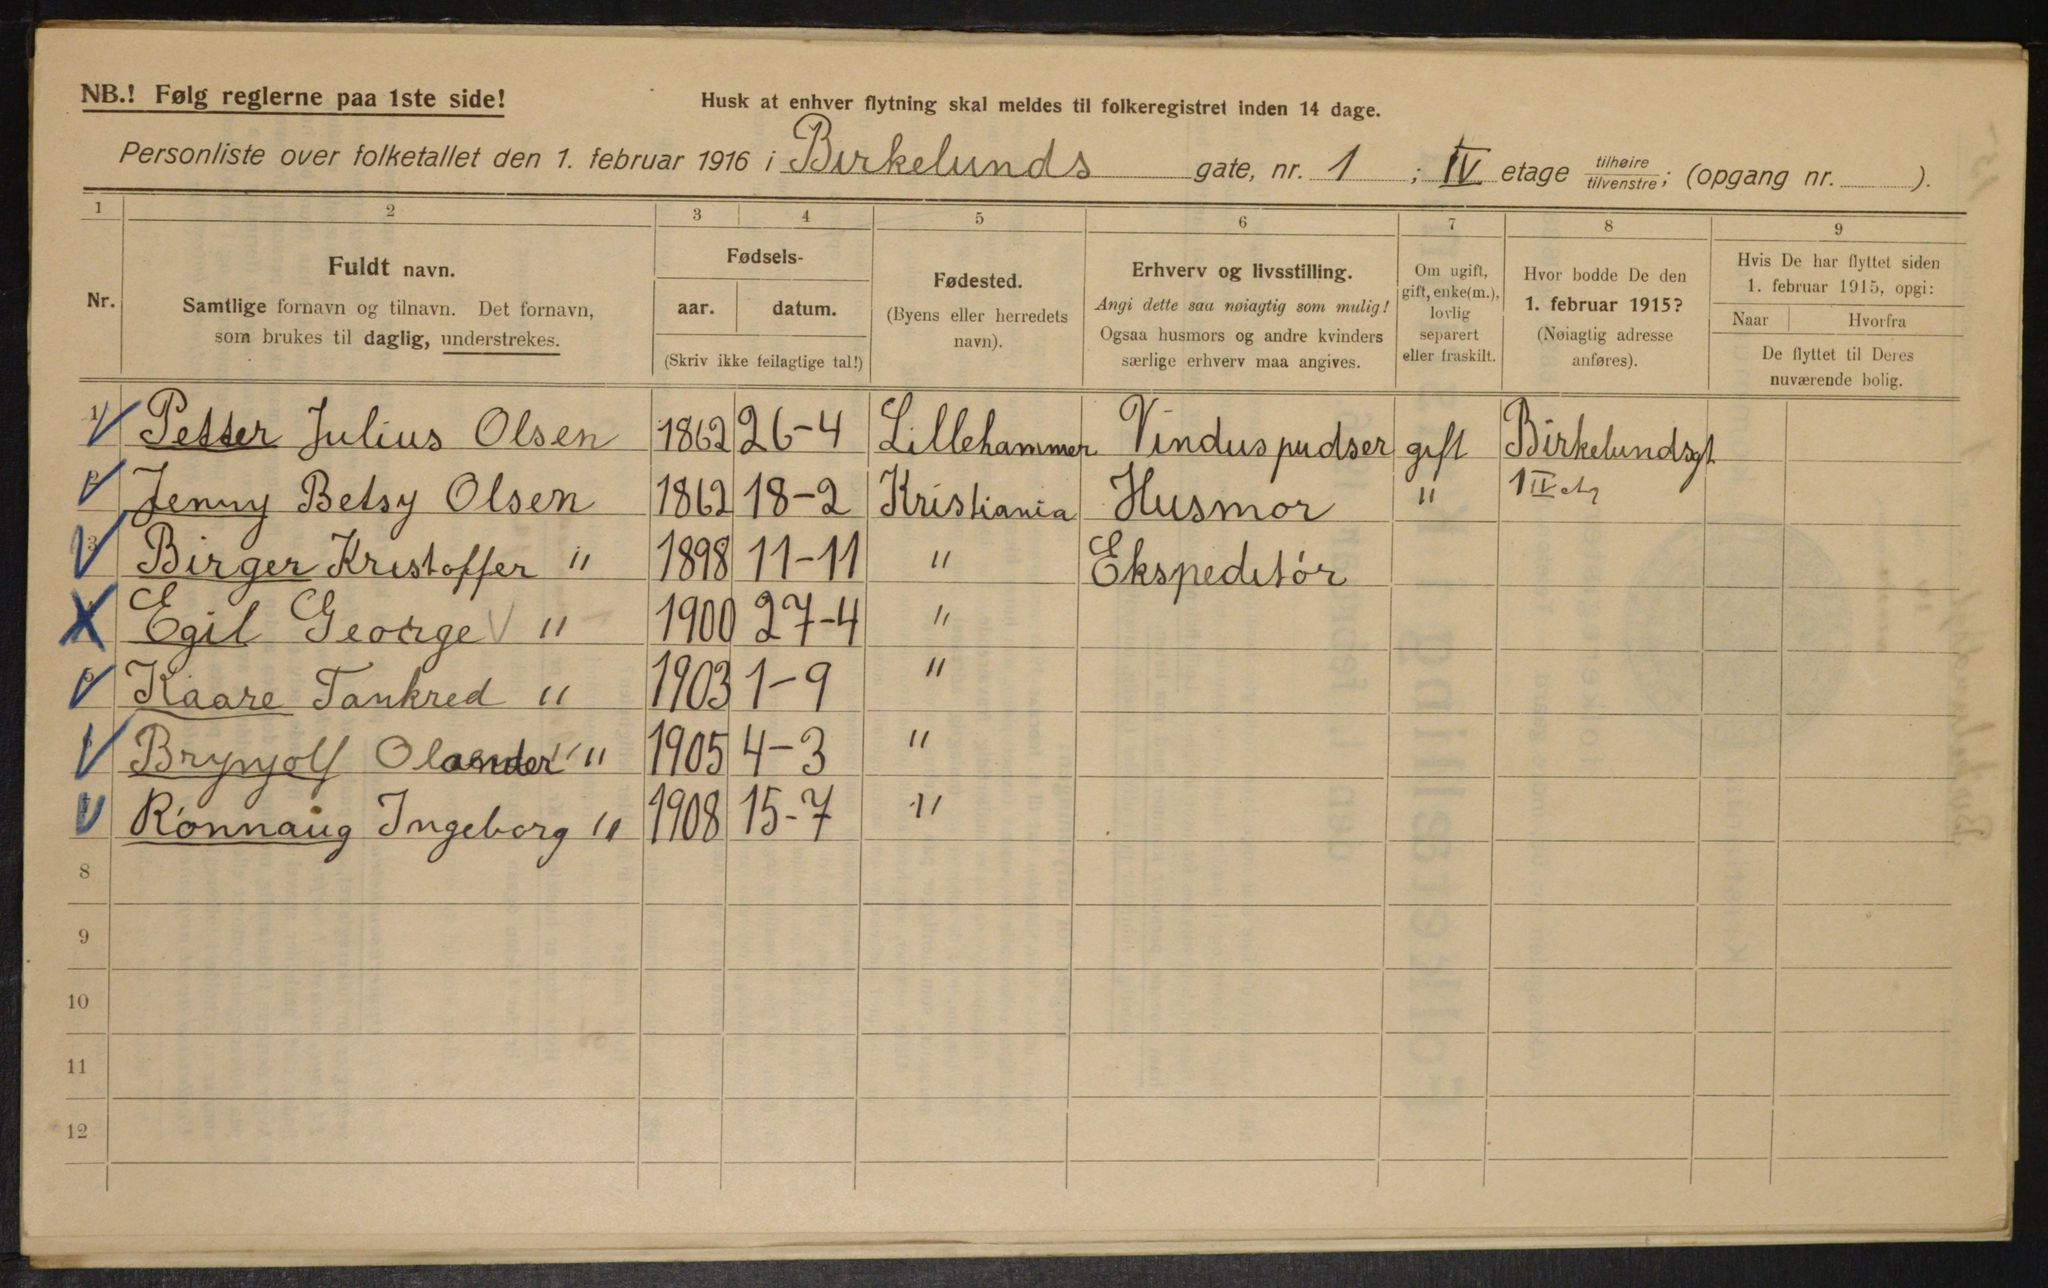 NB.! Følg reglerne paa 1ste side!
Husk at enhver flytning skal meldes til folkeregistret inden 14 dage.
Personliste over folketallet den 1. februar 1916 i Birkelunds gate, nr. 1 ; IV etage tilhøire/tilvenstre; (opgang nr. ).
1 2 3 4 5 6 7 8 9
Nr.
Fuldt navn.
Samtlige fornavn og tilnavn. Det fornavn,
som brukes til daglig, understrekes.
Fødsels-
aar. datum.
(Skriv ikke feilagtige tal!)
Fødested.
(Byens eller herredets
navn).
Erhverv og livsstilling.
Angi dette saa nøiagtig som mulig!
Ogsaa husmors og andre kvinders
særlige erhverv maa angives.
Om ugift,
gift, enke(m.),
lovlig
separert
eller fraskilt.
Hvor bodde De den
1. februar 1915?
(Nøiagtig adresse
anføres).
Hvis De har flyttet siden
1. februar 1915, opgi:
Naar Hvorfra
De flyttet til Deres
nuværende bolig.
1 Petter Julius Olsen 1862 26-4 Lillehammer Vinduspudser gift Birkelundsgt
2 Jenny Betsy Olsen 1862 18-2 Kristiania Husmor " 1 IV etg
3 Birger Kristoffer " 1898 11-11 " Ekspeditór
Egil George " 1900 27-4 "
Kaare Tankred " 1903 1-9 "
Brynjolf Olander " 1905 4-3 "
Rónnaug Ingeborg " 1908 15-7 "
8
9
10
11
12